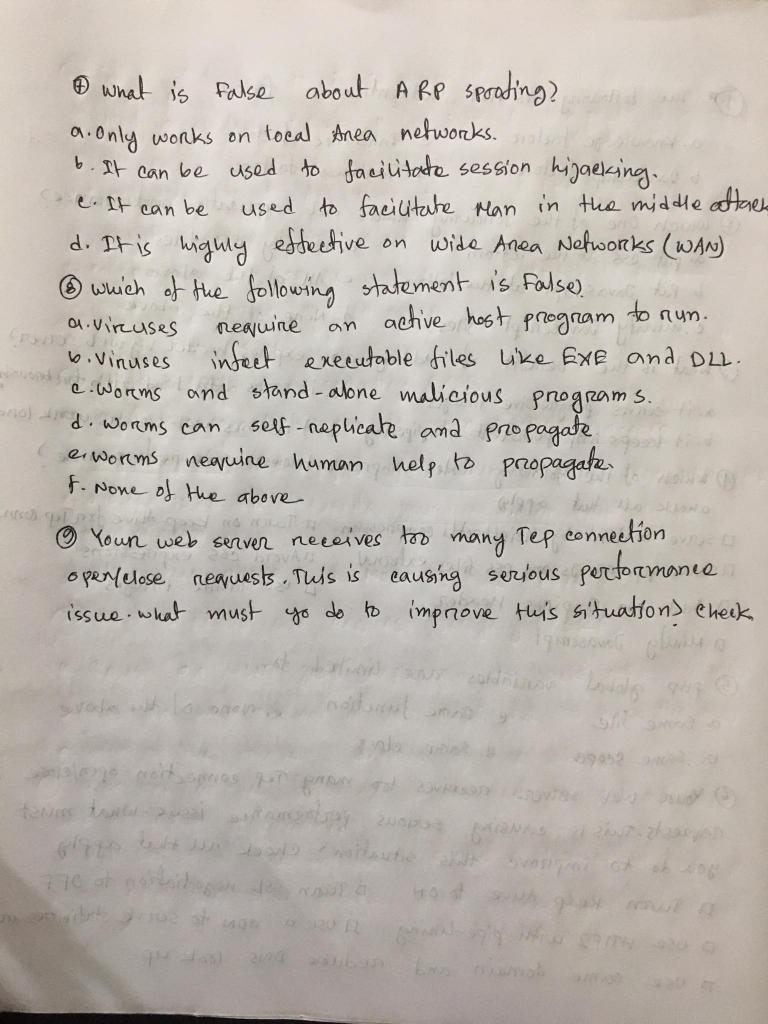 ⑦ what is False about ARP spoofing?
a. only works on local Area networks.
b. It can be used to facilitate session hijacking.
c. It can be used to facilitate Man in the middle attack
d. It is highly effective on Wide Area Networks (WAN)
⑧ which of the following statement is False?
a. viruses require an active host program to run.
b. viruses infect executable files like EXE and DLL.
c. worms and stand-alone malicious programs.
d. worms can self-replicate and propagate
e. worms require human help to propagate.
f. None of the above
⑨ Your web server receives too many Tcp connection
open/close requests. This is causing serious performance
issue. what must yo do to improve this situation? check